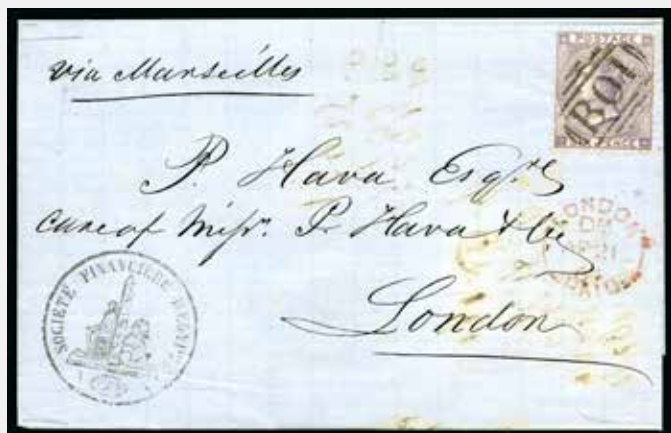 via Marseilles
POSTAGE
B01
SIX PENCE
P. Hava Esqre
care of Messrs. P. Hava & Cie
LONDON
PAID
London
SOCIÉTÉ FINANCIÈRE